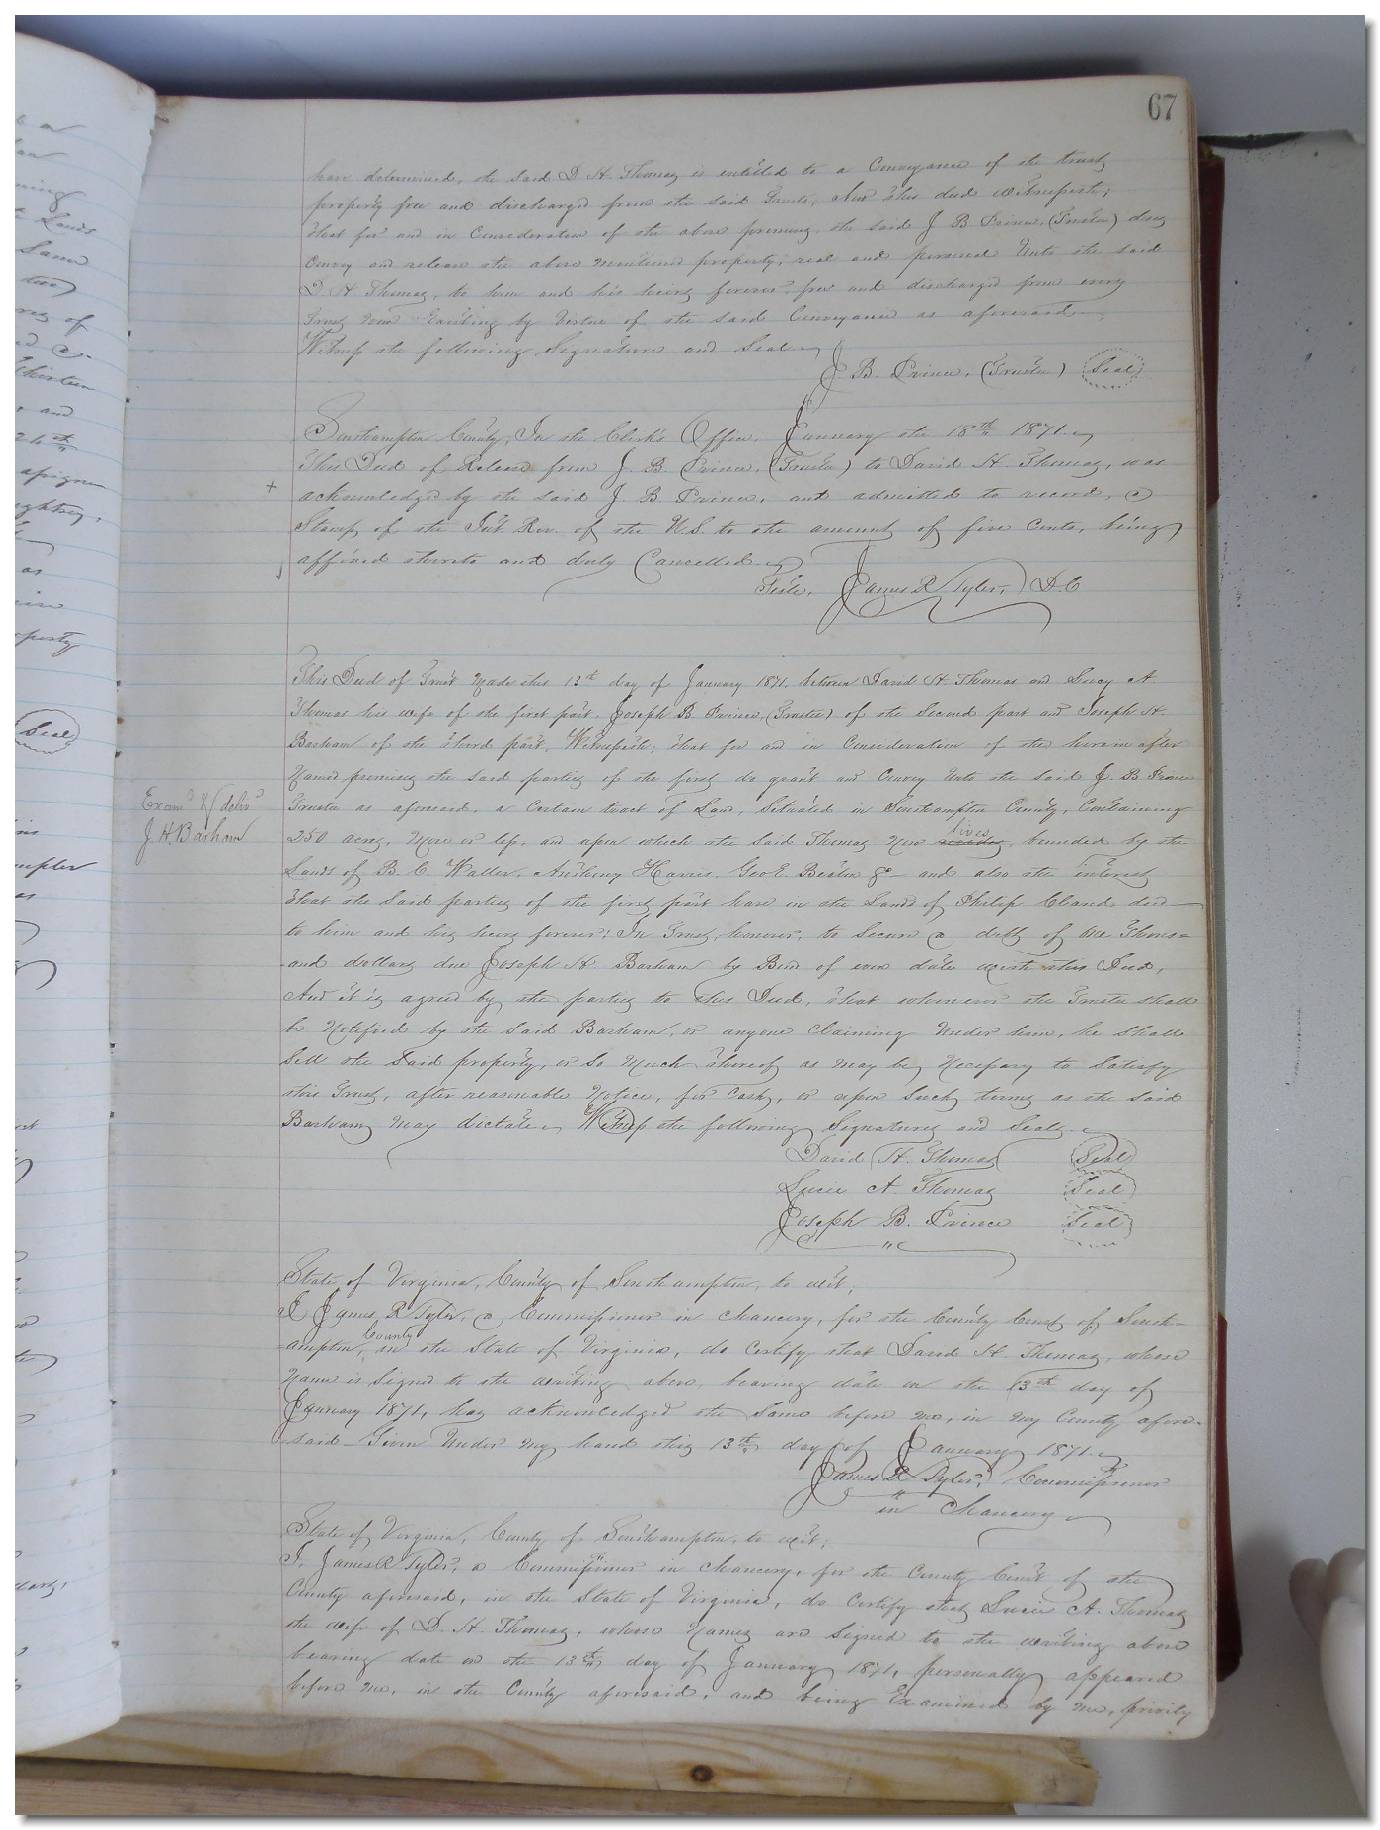 67
have determined, the said D H Thomas is entitled to a Conveyance of the trust
property free and discharged from the said Trust, Now this deed witnesseth;
that for and in Consideration of the above premises the said J B Prince, (Trustee) does
Convey and release the above mentioned property, real and personal Unto the said
D. H Thomas, to him and his heirs forever, free and discharged from every
Trust now Existing by Virtue of the said Conveyance as aforesaid
Witness the following Signature and Seal
J B. Prince, (Trustee) (Seal)
Southampton County, In the Clerk's Office, January the 18th 1871.
This Deed of Release from J. B. Prince, (Trustee) to David H. Thomas, was
+ acknowledged by the said J. B. Prince, and admitted to record, a
Stamp of the Int Rev. of the U.S. to the amount of five Cents, being
affixed thereto and duly Cancelled
Teste, James R Tyler, D.C
This Deed of Trust Made this 13th day of January 1871, between David H. Thomas and Lucy A
Thomas his wife of the first part, Joseph B. Prince, (Trustee) of the Second part and Joseph H.
Barham of the third part, Witnesseth, that for and in Consideration of the herein after
Named premises the said parties of the first do grant and Convey Unto the said J. B Prince
Examd & delivd
J. H. Barham
Trustee as aforesaid, a certain tract of Land, Situated in Southampton County, Containing
250 acres, More or less, and upon which the said Thomas Now lives, bounded by the
Lands of B. C. Waller, Anthony Harris, Geo E. Beaton &c and also the interest
that the said parties of the first part have in the Land of Philip Claud decd
to him and his heirs forever; In Trust, however, to Secure a debt of One Thous=
and dollars due Joseph H. Barham by Bond of even date with this Deed,
And it is agreed by the parties to this Deed, that whenever the Trustee shall
be Notified by the said Barham, or anyone claiming Under him, he shall
Sell the said property, or so Much thereof as may be Necessary to Satisfy
this Trust, after reasonable Notice, for Cash, or upon Such terms as the said
Barham May dictate. Witness the following Signatures and Seals.
David H. Thomas (Seal)
Lucie A. Thomas (Seal)
Joseph B. Prince (Seal)
State of Virginia, County of Southampton, to wit,
I James R Tyler, a Commissioner in Chancery, for the County Court of South=
ampton County, in the State of Virginia, do Certify that David H Thomas, whose
Name is signed to the writing above, bearing date on the 13th day of
January 1871, has acknowledged the same before me, in my County afore=
said. Given Under My hand this 13th day of January 1871.
James R Tyler, Commissioner
in Chancery
State of Virginia, County of Southampton, to wit;
I, James R Tyler, a Commissioner in Chancery, for the County Court of the
County aforesaid, in the State of Virginia, do Certify that Lucie A. Thomas
the wife of D. H. Thomas, whose Names are signed to the writing above
bearing date on the 13th day of January 1871, personally appeared
before me, in the County aforesaid, and being Examined by me, privily